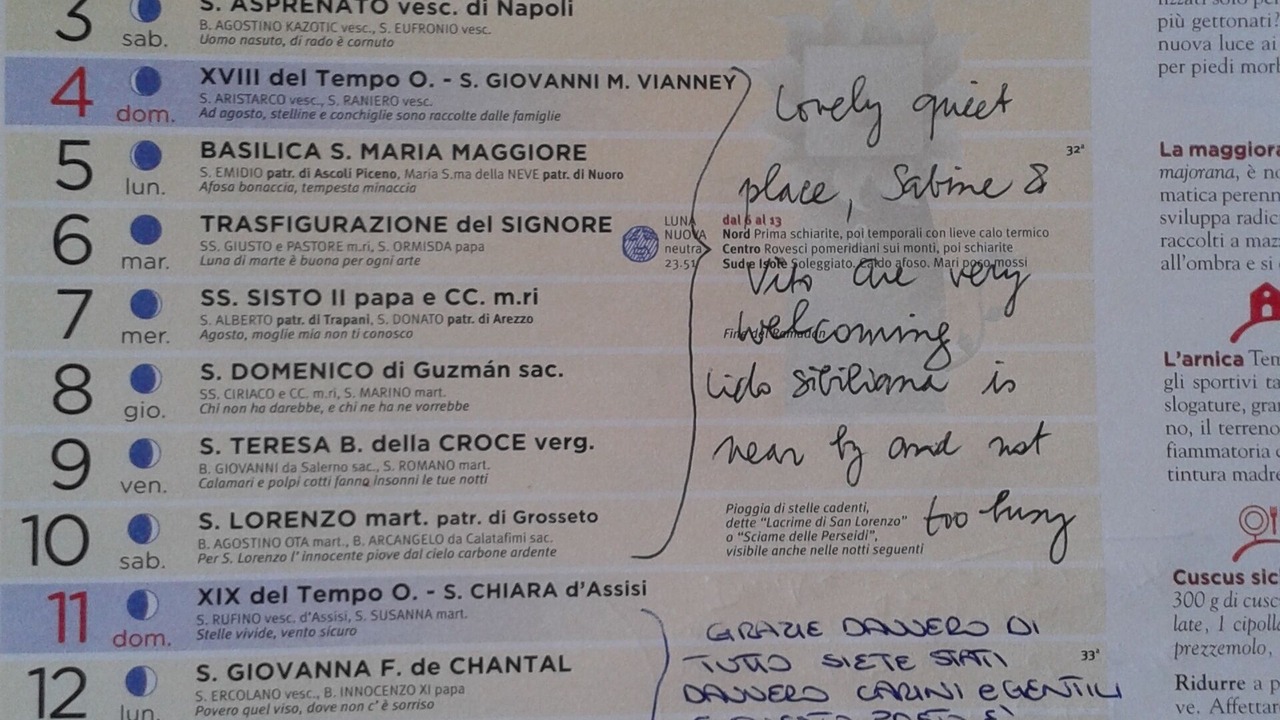 3 S. ASPRENATO vesc. di Napoli
sab. B. AGOSTINO KAZOTIC vesc., S. EUFRONIO vesc.
Uomo nasuto, di rado è cornuto
4 XVIII del Tempo O. - S. GIOVANNI M. VIANNEY
dom. S. ARISTARCO vesc., S. RANIERO vesc.
Ad agosto, stelline e conchiglie sono raccolte dalle famiglie
5 BASILICA S. MARIA MAGGIORE
lun. S. EMIDIO patr. di Ascoli Piceno, Maria S.ma della NEVE patr. di Nuoro
Afosa bonaccia, tempesta minaccia
32ª
6 TRASFIGURAZIONE del SIGNORE
mar. SS. GIUSTO e PASTORE m.ri, S. ORMISDA papa
Luna di marte è buona per ogni arte
LUNA
NUOVA
neutra
23.51
dal 6 al 13
Nord Prima schiarite, poi temporali con lieve calo termico
Centro Rovesci pomeridiani sui monti, poi schiarite
Sud e Isole Soleggiato. Caldo afoso. Mari poco mossi
7 SS. SISTO II papa e CC. m.ri
mer. S. ALBERTO patr. di Trapani, S. DONATO patr. di Arezzo
Agosto, moglie mia non ti conosco
Fine del Ramadan
8 S. DOMENICO di Guzmán sac.
gio. SS. CIRIACO e CC. m.ri, S. MARINO mart.
Chi non ha darebbe, e chi ne ha ne vorrebbe
9 S. TERESA B. della CROCE verg.
ven. B. GIOVANNI da Salerno sac., S. ROMANO mart.
Calamari e polpi cotti fanno insonni le tue notti
10 S. LORENZO mart. patr. di Grosseto
sab. B. AGOSTINO OTA mart., B. ARCANGELO da Calatafimi sac.
Per S. Lorenzo l'innocente piove dal cielo carbone ardente
Pioggia di stelle cadenti,
dette "Lacrime di San Lorenzo"
o "Sciame delle Perseidi",
visibile anche nelle notti seguenti
11 XIX del Tempo O. - S. CHIARA d'Assisi
dom. S. RUFINO vesc. d'Assisi, S. SUSANNA mart.
Stelle vivide, vento sicuro
12 S. GIOVANNA F. de CHANTAL
lun. S. ERCOLANO vesc., B. INNOCENZO XI papa
Povero quel viso, dove non c'è sorriso
33ª
Lovely quiet
place, Sabine &
Vito are very
welcoming
Lido sibiliana is
near by and not
too busy
GRAZIE DAVVERO DI
TUTTO SIETE STATI
DAVVERO CARINI e GENTILI
più gettonati?
nuova luce ai
per piedi morb
La maggiora
majorana, è no
matica perenn
sviluppa radic
raccolti a maz
all'ombra e si
L'arnica Ten
gli sportivi ta
slogature, gran
no, il terreno
fiammatoria e
tintura madre
Cuscus sici
300 g di cusc
late, 1 cipolla
prezzemolo,
Ridurre a p
ve. Affettar